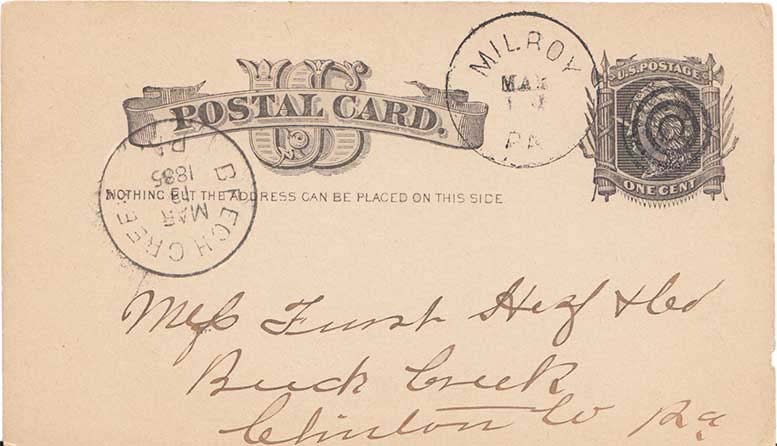 US
POSTAL CARD.
MILROY
MAR
PA
U.S. POSTAGE
ONE CENT
BEECH CREEK
PA
MAR
1885
NOTHING BUT THE ADDRESS CAN BE PLACED ON THIS SIDE
Mess Furst & Co
Beech Creek
Clinton Co Pa